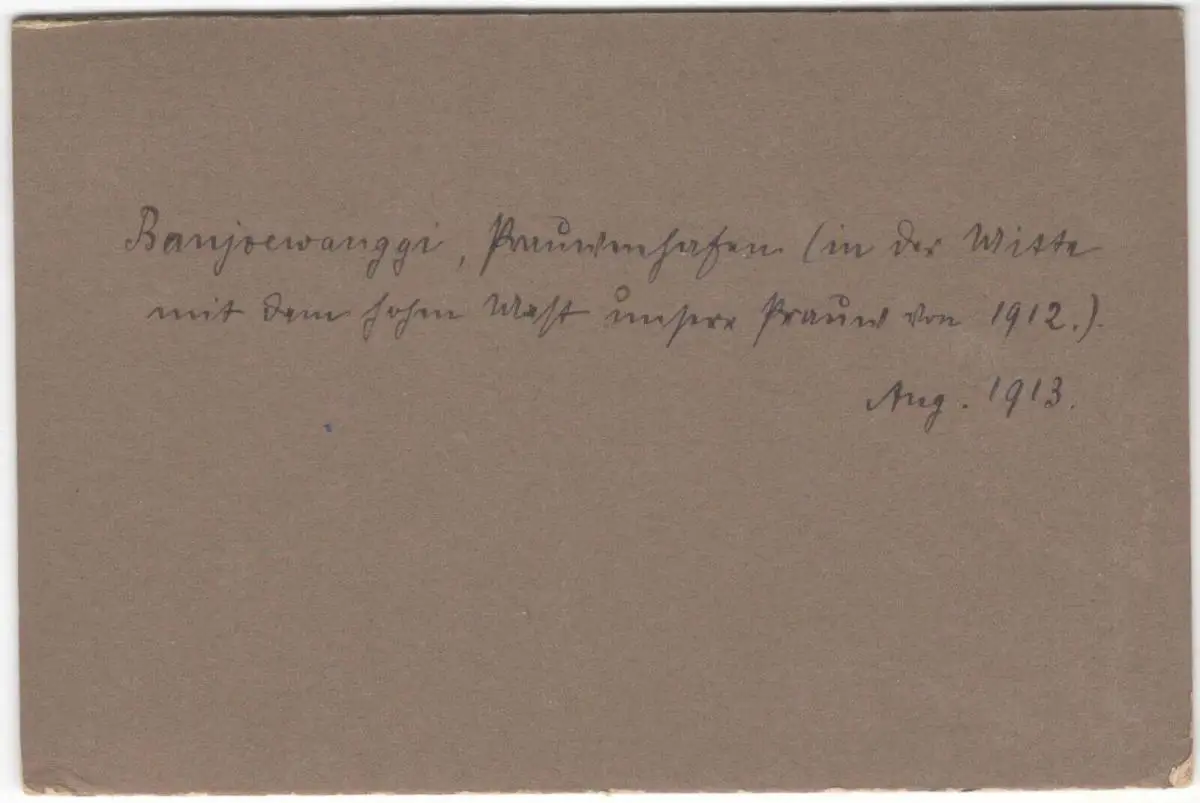 Banjoewanggi, Prauwenhafen (in der Mitte
mit dem hohen Mast unsere Prauw von 1912.).
Aug. 1913.